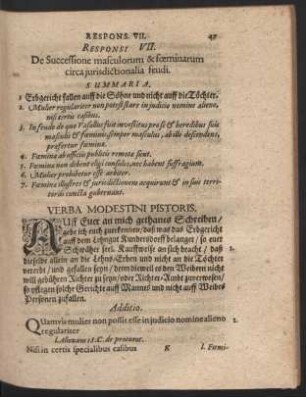 RESPONS. VII.
RESPONSI VII.
De Successione masculorum & fœminarum
circa jurisdictionalia feudi.
SUMMARIA.
1 Erbgericht fallen auff die Söhne und nicht auff die Töchter.
2. Mulier regulariter non potest stare in judicio nomine alieno,
nisi certis casibus.
3. In feudo de quo Vasallus fuit investitus pro se & heredibus suis
masculis & fœminis semper masculus, ab illo descendens,
præfertur fœminæ.
4. Fœmina ab officiis publicis remota sient.
5. Fœmina non debent eligi consules, nec habent suffragium.
6. Mulier prohibetur esse arbiter.
7. Fœmina illustres & jurisdictionem acquirunt & in suis terri-
toriis cuncta gubernant.
VERBA MODESTINI PISTORIS.
AUff Euer an mich gethanes Schreiben/
gebe ich euch zuerkennen/ daß was das Erbgericht
auff dem Lehngut belanget/ so euer
Schwäher sel. Kauffweise an sich bracht/ daß
dieselb allein an die Lehns-Erben und nicht an die Töchter
vererbt/ und gefallen seyn/ denn diweil es den Weibern nicht
will gebühren Richter zu seyn/ oder Richter-Ambt zuverwesen/
so pflegen solche Gericht auff Mannes und nicht auff Weibes
Personen zufallen.
2.
Additio.
QUamvis mulier non possit esse in judicio nomine alieno
regulariter
1.
l. alienam 18. C. de procurat.
Nisi in certis specialibus casibus
K
l. Fœmi-